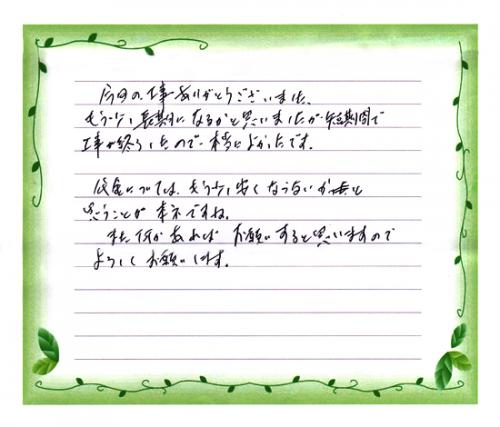 今回の工事ありがとうございました。
もう少し長期になるかと思いましたが短期間で
工事が終了したので本当によかったです。
代金については、もう少し安くならないかと
思うことが本音ですね。
また何かあればお願いすると思いますので
よろしくお願いします。